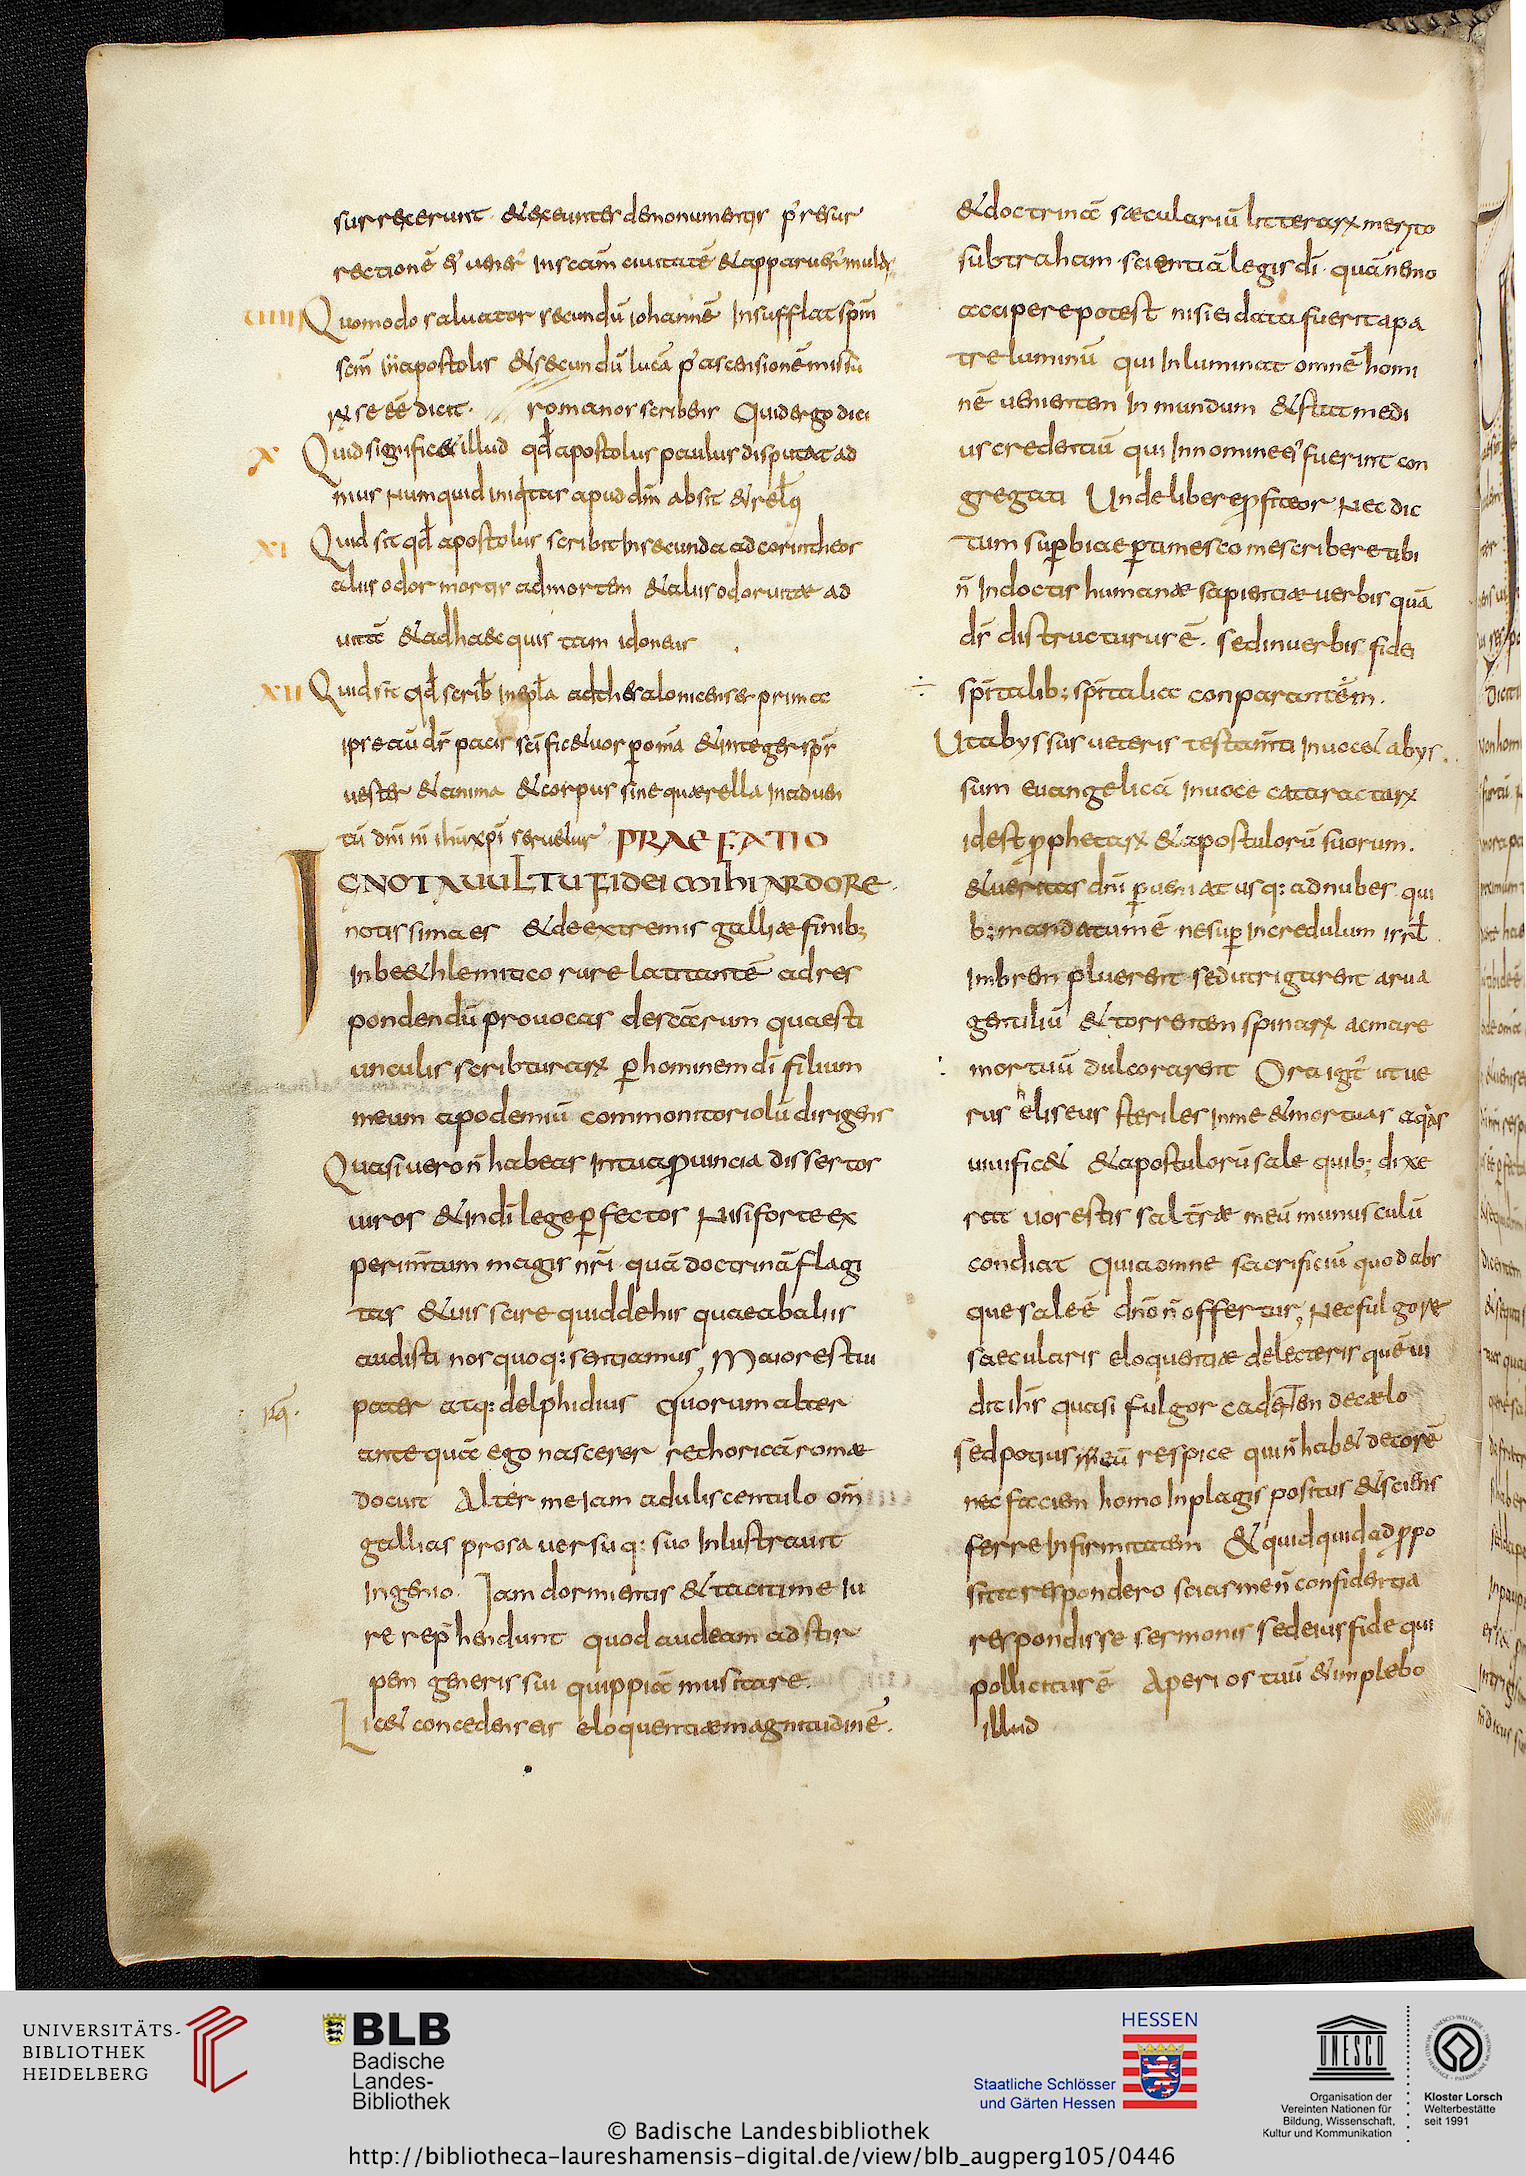 surrexerunt · & exeuntes de monumentis p' resur
rectionē ei' uener' In scām ciuitatē & apparuer' mult
uiiii Quomodo saluator secundū iohannē Insufflat spm̄
scm̄ in apostolis & secundū lucā p' ascensionē missu
rꝝ se eē dicit · romanos scribens Quid ergo dici
x Quid signific& illud qd̄ apostolus paulus disputat ad
mus Numquid iniqitas apud dm̄ absit & reliq
xi Quid sit qd̄ apostolus scribit In secunda ad corintheos
alius odor mortis ad mortem & alius odor uitae ad
uitā & ad haec quis tam idoneus
xii Quid sit qd̄ scrib̄ In epl̄a ad thesalonicenses prima
ipse aū dr̄ pacis sc̄ific& uos p omīa & integer spr̄
uester & anima & corpus sine quaerella In aduen
tū dn̄i n̄i ih̄u xp̄i seruetur PRAEFATIO
IGNOTA UULTU FIDEI MIHI ARDORE ·
notissima es & de extremis galliae finib;
In be&hlemitico rure latitantē ad res
pondendū prouocas de scārum quaesti
unculis scribturarꝝ p hominem dī filium
meum apodemiū commonitoriolū dirigens
Quasi uero n̄ habeas In tua ꝓuincia dissertos
uiros & In dī lege pfectos Nisi forte ex
perimn̄tum magis nr̄i quā doctrinā flagi
tas & uis scire quid de his quae ab aliis
audisti nos quoq: sentiamus, Maiores tui
pater atq: delphidius Quorum alter
ante quā ego nascerer rethoricā romae
docuit Alter me Iam aduliscentulo om̄
gallias prosa uersu q: suo Inlustrauit
Ingenio · Iam dormientis & taciti me Iu
re rep̄hendunt quod audeam ad stir
pem generis sui quippiā musitare ·
Lic& concedens eis eloquentiae magnitudinē ·
& doctrinā saeculariū litterarꝝ merito
subtraham · scientiā legis dī · quā nemo
accipere potest nisi ei data fuerit a pa
tre luminū qui Inluminat omnē homi
nē uenientem In mundum & stat medi
us credentiū qui In nomine ei' fuerint con
gregati Unde libere ꝓfiteor Nec dic
tum supbiae ptimesco me scribere tibi
n̄ In doctis humanae sapientiae uerbis quā
dr̄ distructurus ē · sed in uerbis fidei
spīitalib; spīitalia conparantēm ·
Ut abyssus ueteris testam̄ti Inuoc& abys
sum euangelicā In uoce cataractarꝝ
id est ꝓphetarꝝ & apostulorū suorum ·
& ueritas dn̄i pueniat usq: ad nubes qui
b: mandatum ē ne sup Incredulum isrl̄
Imbrem pluerent sed ut rigarent arua
gentiliū & torrentem spinarꝝ ac mare
mortuū dulcorarent Ora igit' ut ue
rus heliseus steriles In me & mortuas aqas
uiuific& & apostulorū sale quib; dixe
rat uos estis sal trae meū munusculū
condiat Quia omne sacrificiū quod abs
que sale ē dn̄o n̄ offertur, Nec fulgore
saecularis eloquentiae delecteris quē ui
dit ih̄s quasi fulgor cadentem de caelo
sed potius meū respice qui n̄ hab& decorē
nec faciem homo In plagis positus & sciens
ferre Infirmitatem & quidquid ad ꝓpo
sita respondero scias me n̄ confidentia
respondisse sermonis sed eius fide qui
pollicitus ē Aperi os tuū & implebo
illud
UNIVERSITÄTS-
BIBLIOTHEK
HEIDELBERG
BLB
Badische
Landes-
Bibliothek
HESSEN
Staatliche Schlösser
und Gärten Hessen
UNESCO
Organisation der
Vereinten Nationen für
Bildung, Wissenschaft,
Kultur und Kommunikation
Kloster Lorsch
Welterbestätte
seit 1991
© Badische Landesbibliothek
http://bibliotheca-laureshamensis-digital.de/view/blb_augperg105/0446